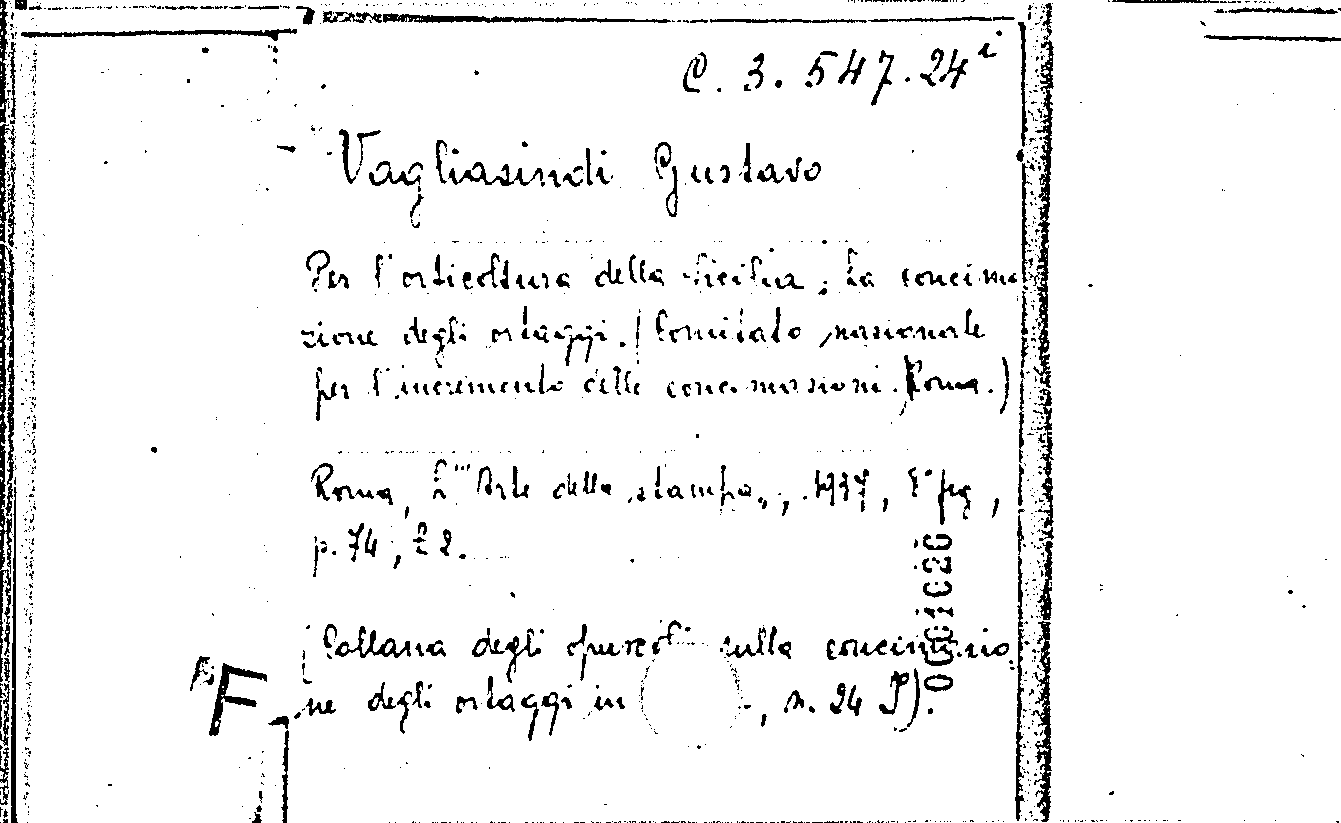 C. 3. 547. 24 i
Vagliasindi Gustavo
Per l'orticoltura della Sicilia; La concima
zione degli ortaggi. (Comitato nazionale
per l'incremento delle concimazioni. Roma.)
Roma, L'"Arte della stampa", 1937, 8° fig,
p. 74, £ 2.
(Collana degli opuscoli sulla concimazio
ne degli ortaggi in, n. 24 I).
0001026
F